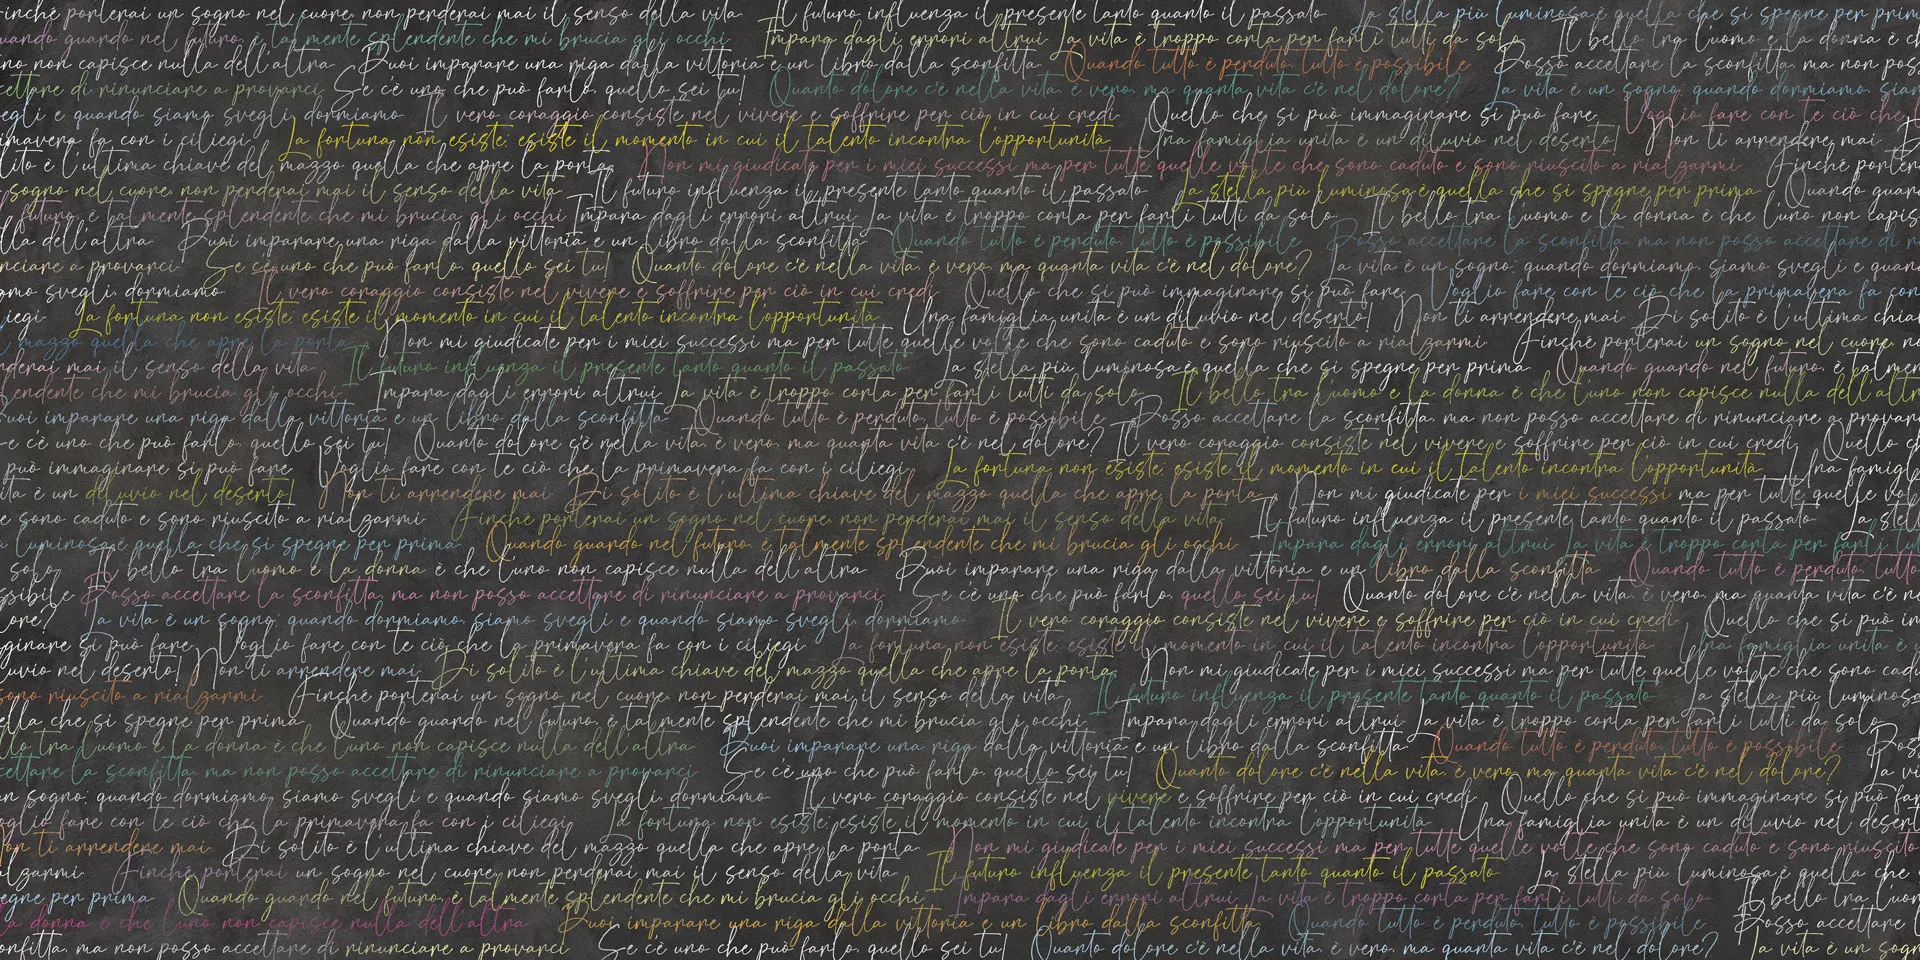 Finché porterai un sogno nel cuore, non perderai mai il senso della vita Il futuro influenza il presente tanto quanto il passato La stella più luminosa è quella che si spegne per prima
Quando guardo nel futuro, è talmente splendente che mi brucia gli occhi Impara dagli errori altrui. La vita è troppo corta per farli tutti da solo. Il bello tra l'uomo e la donna è che
l'uno non capisce nulla dell'altra Puoi imparare una riga dalla vittoria e un libro dalla sconfitta Quando tutto è perduto, tutto è possibile Posso accettare la sconfitta, ma non posso
accettare di rinunciare a provarci Se c'è uno che può farlo, quello sei tu! Quanto dolore c'è nella vita, è vero, ma quanta vita c'è nel dolore? La vita è un sogno: quando dormiamo, siamo
svegli e quando siamo svegli, dormiamo Il vero coraggio consiste nel vivere e soffrire per ciò in cui credi. Quello che si può immaginare si può fare. Voglio fare con te ciò che
primavera fa con i ciliegi. La fortuna non esiste: esiste il momento in cui il talento incontra l'opportunità Una famiglia unita è un diluvio nel deserto! Non ti arrendere mai
solito è l'ultima chiave del mazzo quella che apre la porta Non mi giudicate per i miei successi ma per tutte quelle volte che sono caduto e sono riuscito a rialzarmi Finché porterai
sogno nel cuore, non perderai mai il senso della vita Il futuro influenza il presente tanto quanto il passato La stella più luminosa è quella che si spegne per prima Quando guardo
futuro, è talmente splendente che mi brucia gli occhi Impara dagli errori altrui. La vita è troppo corta per farli tutti da solo. Il bello tra l'uomo e la donna è che l'uno non capisce
nulla dell'altra Puoi imparare una riga dalla vittoria e un libro dalla sconfitta Quando tutto è perduto, tutto è possibile Posso accettare la sconfitta, ma non posso accettare di
rinunciare a provarci. Se c'è uno che può farlo, quello sei tu! Quanto dolore c'è nella vita, è vero, ma quanta vita c'è nel dolore? La vita è un sogno: quando dormiamo, siamo svegli e quando
siamo svegli, dormiamo Il vero coraggio consiste nel vivere e soffrire per ciò in cui credi. Quello che si può immaginare si può fare. Voglio fare con te ciò che la primavera fa con
ciliegi. La fortuna non esiste: esiste il momento in cui il talento incontra l'opportunità Una famiglia unita è un diluvio nel deserto! Non ti arrendere mai Di solito è l'ultima chiave
mazzo quella che apre la porta Non mi giudicate per i miei successi ma per tutte quelle volte che sono caduto e sono riuscito a rialzarmi Finché porterai un sogno nel cuore, non
perderai mai il senso della vita Il futuro influenza il presente tanto quanto il passato La stella più luminosa è quella che si spegne per prima Quando guardo nel futuro, è talmente
splendente che mi brucia gli occhi Impara dagli errori altrui. La vita è troppo corta per farli tutti da solo. Il bello tra l'uomo e la donna è che l'uno non capisce nulla dell'altra
Puoi imparare una riga dalla vittoria e un libro dalla sconfitta Quando tutto è perduto, tutto è possibile Posso accettare la sconfitta, ma non posso accettare di rinunciare a provarci
Se c'è uno che può farlo, quello sei tu! Quanto dolore c'è nella vita, è vero, ma quanta vita c'è nel dolore? Il vero coraggio consiste nel vivere e soffrire per ciò in cui credi. Quello che
può immaginare si può fare. Voglio fare con te ciò che la primavera fa con i ciliegi. La fortuna non esiste: esiste il momento in cui il talento incontra l'opportunità Una famiglia
unita è un diluvio nel deserto! Non ti arrendere mai Di solito è l'ultima chiave del mazzo quella che apre la porta Non mi giudicate per i miei successi ma per tutte quelle volte
che sono caduto e sono riuscito a rialzarmi Finché porterai un sogno nel cuore, non perderai mai il senso della vita Il futuro influenza il presente tanto quanto il passato La stella
più luminosa è quella che si spegne per prima Quando guardo nel futuro, è talmente splendente che mi brucia gli occhi Impara dagli errori altrui. La vita è troppo corta per farli tutti
da solo. Il bello tra l'uomo e la donna è che l'uno non capisce nulla dell'altra Puoi imparare una riga dalla vittoria e un libro dalla sconfitta Quando tutto è perduto, tutto
possibile Posso accettare la sconfitta, ma non posso accettare di rinunciare a provarci. Se c'è uno che può farlo, quello sei tu! Quanto dolore c'è nella vita, è vero, ma quanta vita c'è nel
dolore? La vita è un sogno: quando dormiamo, siamo svegli e quando siamo svegli, dormiamo Il vero coraggio consiste nel vivere e soffrire per ciò in cui credi. Quello che si può
immaginare si può fare. Voglio fare con te ciò che la primavera fa con i ciliegi La fortuna non esiste: esiste il momento in cui il talento incontra l'opportunità Una famiglia unita è un
diluvio nel deserto! Non ti arrendere mai Di solito è l'ultima chiave del mazzo quella che apre la porta Non mi giudicate per i miei successi ma per tutte quelle volte che sono caduto
sono riuscito a rialzarmi Finché porterai un sogno nel cuore, non perderai mai il senso della vita Il futuro influenza il presente tanto quanto il passato La stella più luminosa
quella che si spegne per prima Quando guardo nel futuro, è talmente splendente che mi brucia gli occhi Impara dagli errori altrui. La vita è troppo corta per farli tutti da solo.
bello tra l'uomo e la donna è che l'uno non capisce nulla dell'altra Puoi imparare una riga dalla vittoria e un libro dalla sconfitta Quando tutto è perduto, tutto è possibile Posso
accettare la sconfitta, ma non posso accettare di rinunciare a provarci Se c'è uno che può farlo, quello sei tu! Quanto dolore c'è nella vita, è vero, ma quanta vita c'è nel dolore? La vita
un sogno: quando dormiamo, siamo svegli e quando siamo svegli, dormiamo Il vero coraggio consiste nel vivere e soffrire per ciò in cui credi. Quello che si può immaginare si può fare
Voglio fare con te ciò che la primavera fa con i ciliegi La fortuna non esiste: esiste il momento in cui il talento incontra l'opportunità Una famiglia unita è un diluvio nel deserto
Non ti arrendere mai Di solito è l'ultima chiave del mazzo quella che apre la porta Non mi giudicate per i miei successi ma per tutte quelle volte che sono caduto e sono riuscito
rialzarmi Finché porterai un sogno nel cuore, non perderai mai il senso della vita Il futuro influenza il presente tanto quanto il passato La stella più luminosa è quella che
spegne per prima Quando guardo nel futuro, è talmente splendente che mi brucia gli occhi Impara dagli errori altrui. La vita è troppo corta per farli tutti da solo Il bello tra l'uomo
la donna è che l'uno non capisce nulla dell'altra Puoi imparare una riga dalla vittoria e un libro dalla sconfitta Quando tutto è perduto, tutto è possibile Posso accettare
sconfitta, ma non posso accettare di rinunciare a provarci Se c'è uno che può farlo, quello sei tu! Quanto dolore c'è nella vita, è vero, ma quanta vita c'è nel dolore? La vita è un sogno